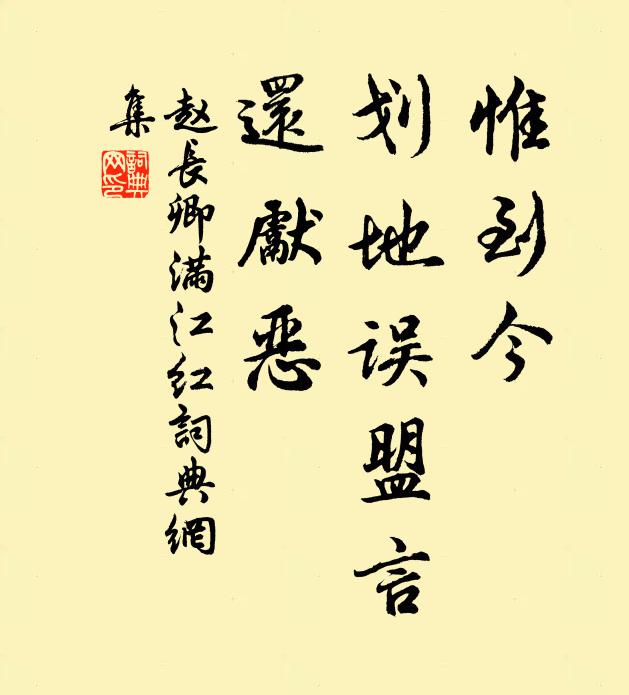 惟到今
划地误盟言
還獻惡
赵長卿满江红詞典網
集
詞典网印